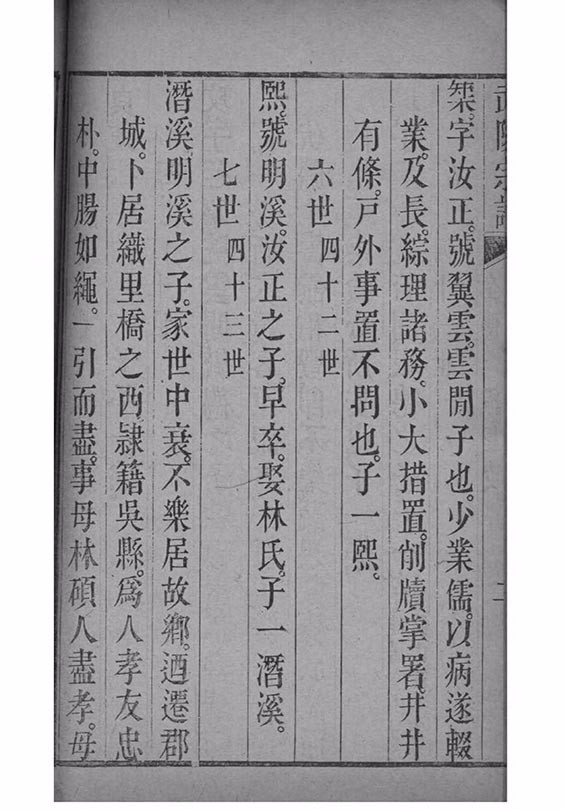 武陵宗譜
二
桀。字汝正。號翼雲。雲閒子也。少業儒。以病遂輟
業。及長。綜理諸務。小大措置。削牘掌署。井井
有條。戶外事置不問也。子一熙。
六世四十二世
熙。號明溪。汝正之子。早卒。娶林氏。子一潛溪。
七世四十三世
潛溪。明溪之子。家世中衰。不樂居故鄉。迺遷郡
城。卜居織里橋之西。隷籍吳縣。爲人孝友忠
朴。中腸如繩。一引而盡。事母林碩人盡孝。母